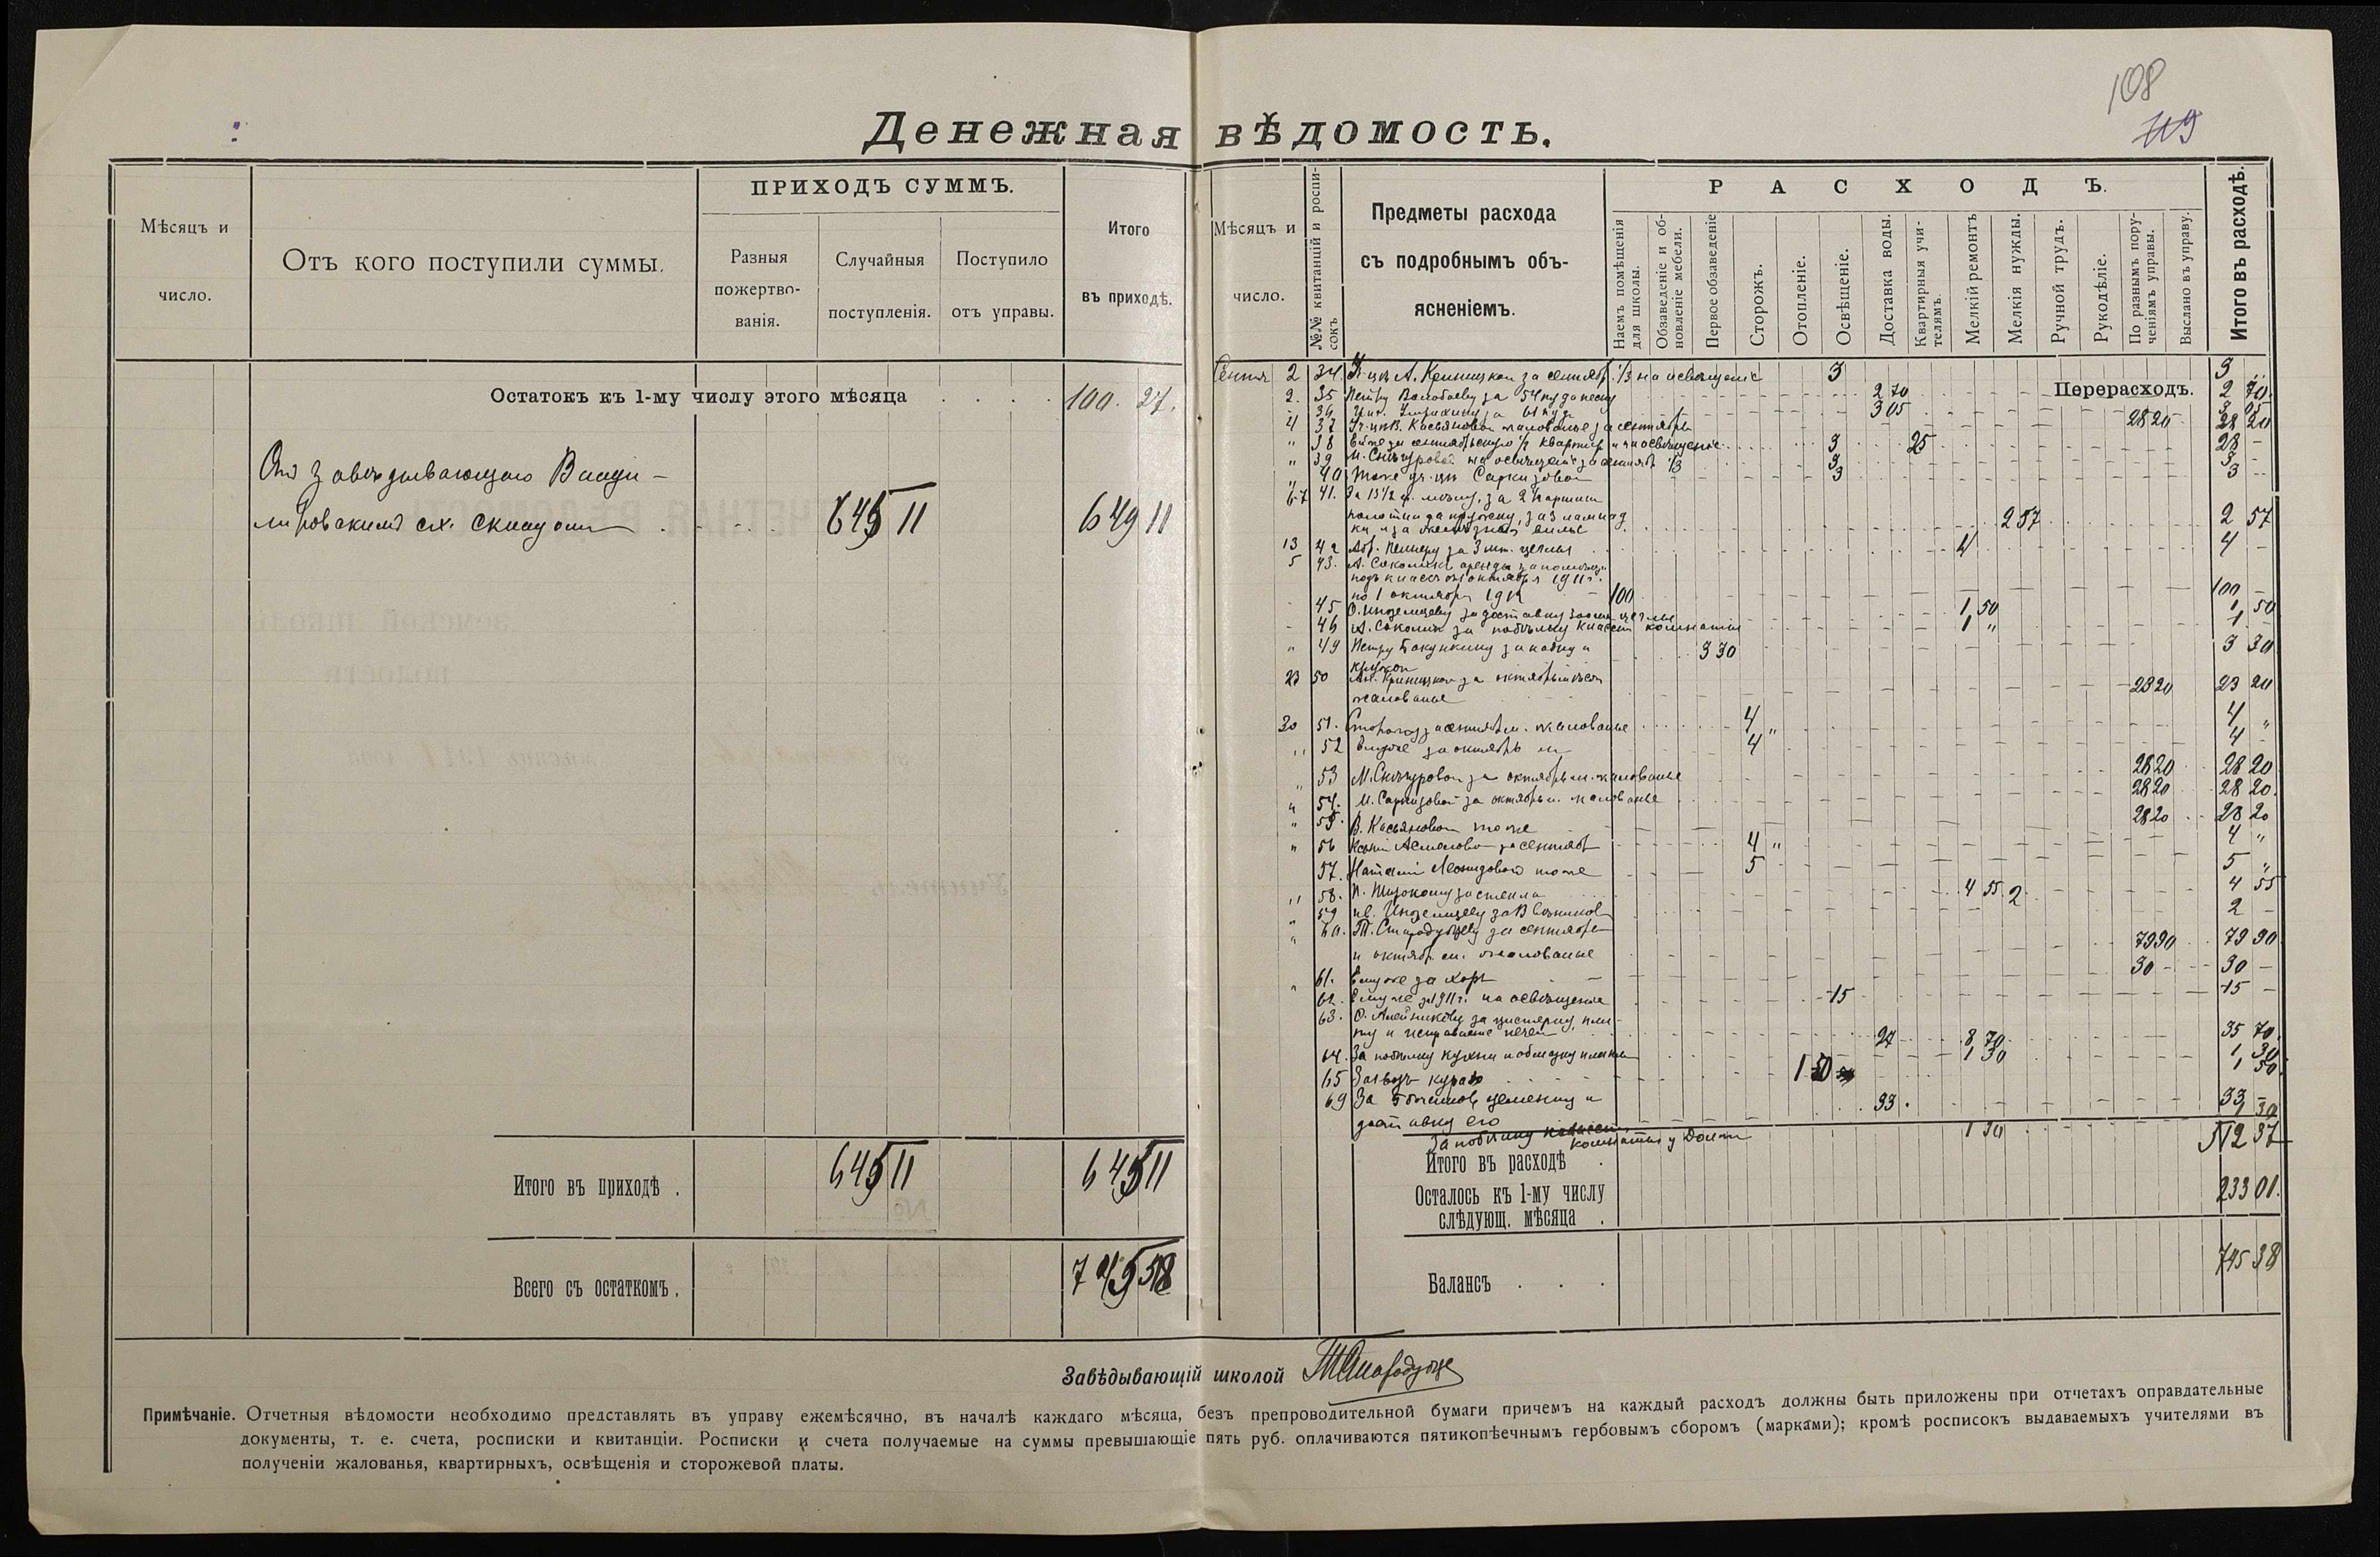 108
119
Денежная вѣдомость.
Мѣсяцъ и число.
Отъ кого поступили суммы.
ПРИХОДЪ СУММЪ.
Разныя пожертво-
ванія.
Случайныя поступленія.
Поступило отъ управы.
Итого въ приходѣ.
Остатокъ къ 1-му числу этого мѣсяца . . . . 100. 27.
Отъ Завѣдывающаго Влади-
мировскимъ с.х. складомъ 645 11 649 11
Итого въ приходѣ . 645 11 645 11
Всего съ остаткомъ . 745 38
Мѣсяцъ и число.
№№ квитанцій и роспи-
сокъ
Предметы расхода
съ подробнымъ объ-
ясненіемъ.
РАСХОДЪ.
Наемъ помѣщенія для школы.
Обзаведеніе и об-
новленіе мебели.
Первое обзаведеніе
Сторожъ.
Отопленіе.
Освѣщеніе.
Доставка воды.
Квартирныя учи-
телямъ.
Мелкій ремонтъ
Мелкія нужды.
Ручной трудъ.
Рукодѣліе.
По разнымъ пору-
ченіямъ управы.
Выслано въ управу.
Итого въ расходѣ.
Перерасходъ.
2 34. Уч-цѣ А. Криницкой за сентябр. 1/3 на освѣщеніе 3 3
2. 35 Петру за 54 пуда 2 70 2 70
36 за 61 пуд 3 05
4 37 Уч-цѣ В. Касьяновой жалованье за сентябрь 28 20 28 20
" 38 Ей же за квартир и на освѣщеніе 3 25 28 -
" 39 М. Снѣгуровой на освѣщеніе за сентябр 1/3 3 3 -
" 40 Тоже уч-цѣ Саркизовой 3 3 -
6-7 41. За 13 1/2 ф. за 2
за кружку, за 3 лампад
ки и за 2 57 2 57
13 42 за 3 шт. 4 4 -
5 43. А. Соколик аренды за помѣщ.
подъ классъ отъ октября 1911 г.
по 1 октября 1912 100 100 -
45 О. Иноземцеву за доставку 1 50 1 50
46 А. Соколик за побѣлку классн комнаты 1 " 1 -
" 49 Петру за кадку и
кружки 3 30 3 30
23 50 Ан. Криницкой за октябрь мѣсяц
жалованье 23 20 23 20
30 51. Сторожу за сентябрь м. жалованье 4 " 4 "
" 52 Ему же за октябрь м 4 4 -
" 53 М. Снѣгуровой за октябрь м. жалованье 28 20 28 20
" 54. М. Саркизовой за октябрь м. жалованье 28 20 28 20.
" 55. В. Касьяновой тоже 28 20 28 20
" 56 за сентябр 4 " 4 "
57. Наталіи Леонидовой тоже 5 5 "
" 58. П. Широкому за стекла 4 55 4 55
" 59 Ив. Иноземцеву за 2 2 -
" 60. Т. Стародубцеву за сентябрь
и октябр. м. жалованье 79 90 79 90
" 61. Ему же за хоръ 30 - 30 -
62. Ему же за 1911 г. на освѣщеніе 15 15 -
63. О. Алейникову за цистерну, пли-
ту и исправленіе печей 27 8 70 35 70
64. За побѣлку кухни и обмазку 1 30 1 30
65 За возъ 1 50 1 50
69 За 5 боченковъ цементу и
доставку его 33. 33 -
За побѣлку классн. комнаты у 1 30 1 30
Итого въ расходѣ . 512 37
Осталось къ 1-му числу
слѣдующ. мѣсяца . 233 01.
Балансъ . . . 745 38
Завѣдывающій школой ТСтародубце
Примѣчаніе. Отчетныя вѣдомости необходимо представлять въ управу ежемѣсячно, въ началѣ каждаго мѣсяца, безъ препроводительной бумаги причемъ на каждый расходъ должны быть приложены при отчетахъ оправдательные
документы, т. е. счета, росписки и квитанціи. Росписки и счета получаемые на суммы превышающіе пять руб. оплачиваются пятикопѣечнымъ гербовымъ сборомъ (марками); кромѣ росписокъ выдаваемыхъ учителями въ
полученіи жалованья, квартирныхъ, освѣщенія и сторожевой платы.